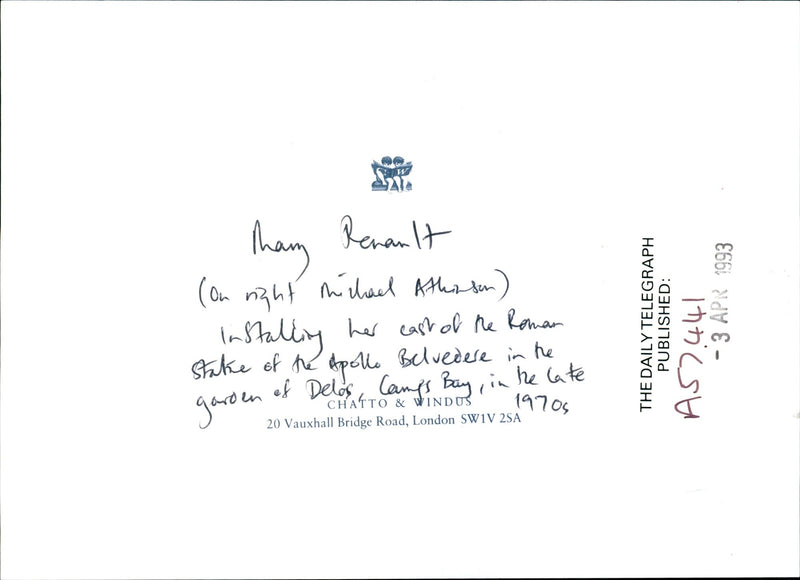 Mary Renault
(On right Michael Atkinson)
Installing her cast of the Roman
statue of the Apollo Belvedere in the
garden of Delos, Camps Bay, in the late
1970s
CHATTO & WINDUS
20 Vauxhall Bridge Road, London SW1V 2SA
THE DAILY TELEGRAPH
PUBLISHED:
A57441
- 3 APR 1993